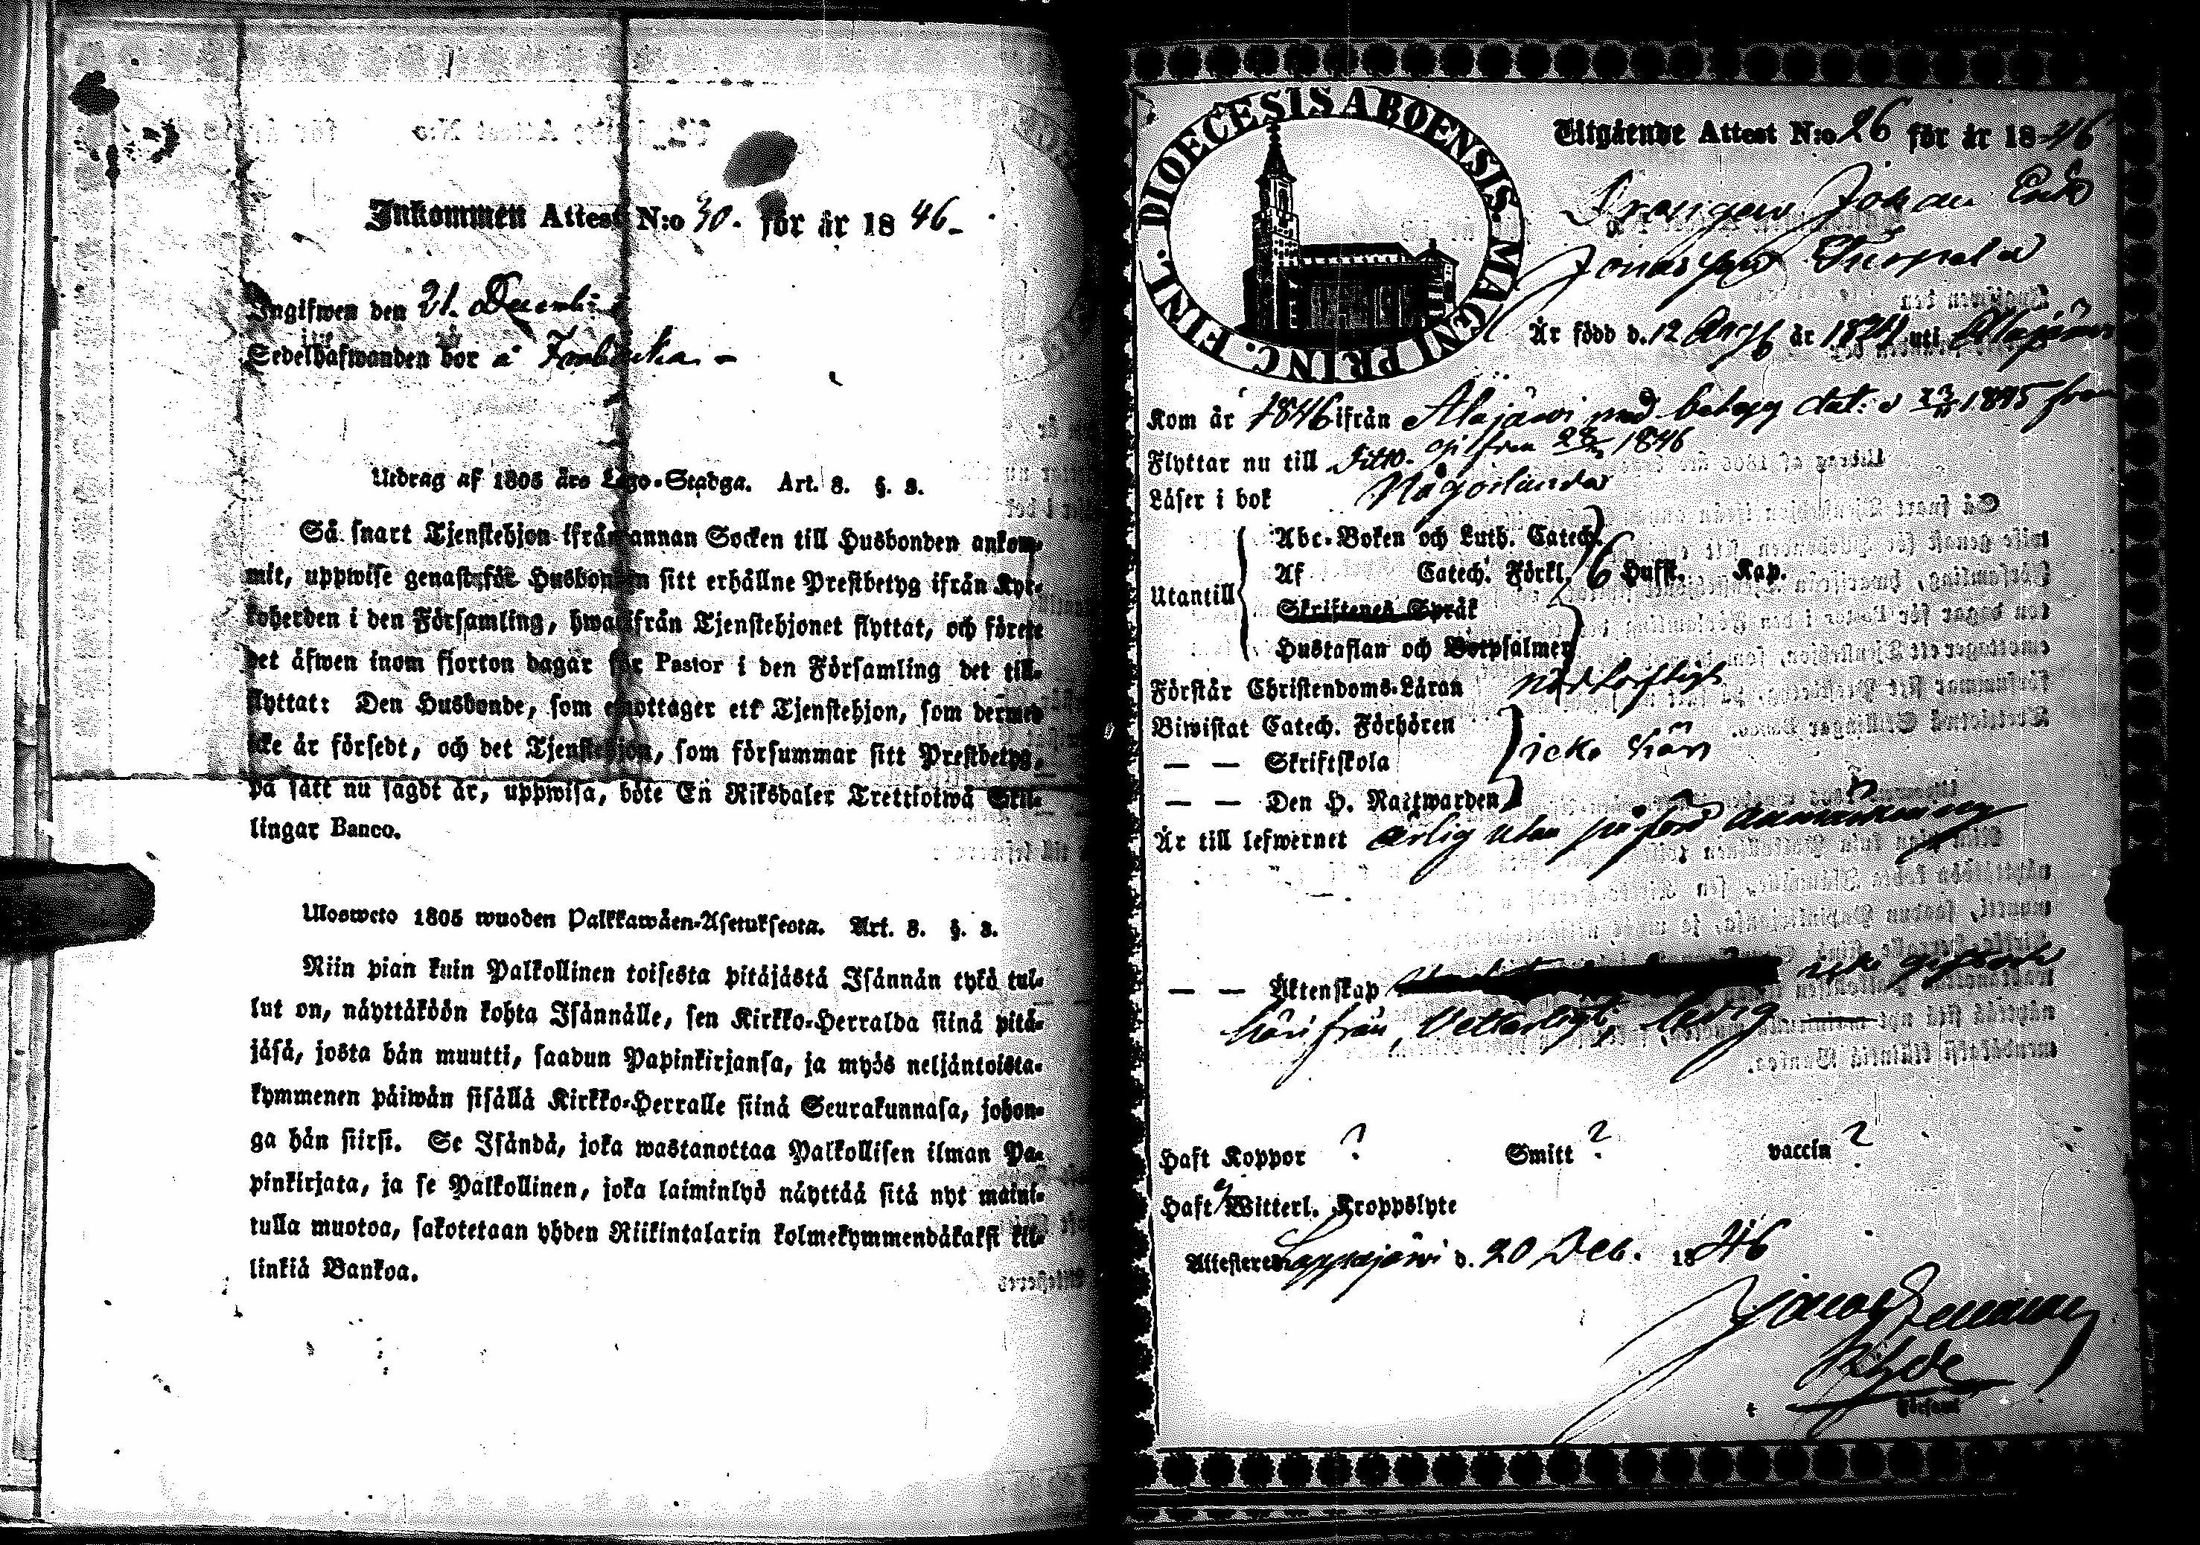 Inkommen Attest N:o 30. för år 1846.
Ingifwen den 21. Decemb:
Sedelhafwanden bor å
Utdrag af 1805 års Lego-Stadga. Art. 8. §. 3.
Så snart Tjenstehjon ifrån annan Socken till Husbonden ankom-
mit, uppwise genast för Husbonden sitt erhållne Prestbetyg ifrån Kyr-
koherden i den Församling, hwarifrån Tjenstehjonet flyttat, och förete
det äfwen inom fjorton dagar för Pastor i den Församling det till-
flyttat: Den Husbonde, som emottager ett Tjenstehjon, som dermed
icke är försedt, och det Tjenstehjon, som försummar sitt Prestbetyg,
på sätt nu sagdt är, uppwisa, böte En Riksdaler Trettiotwå Skil-
lingar Banco.
Ulosweto 1805 wuoden Palkkawäen-Asetuksesta. Art. 8. §. 3.
Niin pian kuin Palkollinen toisesta pitäjästä Isännän tykö tul-
lut on, näyttäköön kohta Isännälle, sen Kirkko-Herralda siinä pitä-
jäsä, josta hän muutti, saadun Papinkirjansa, ja myös neljäntoista-
kymmenen päiwän sisällä Kirkko-Herralle siinä Seurakunnasa, johon-
ga hän siirsi. Se Isändä, joka wastanottaa Palkollisen ilman Pa-
pinkirjata, ja se Palkollinen, joka laiminlyö näyttää sitä nyt maini-
tulla muotoa, sakotetaan yhden Riikintalarin kolmekymmendäkaksi kil-
linkiä Bankoa.
DIOECESIS ABOENSIS. MAGNI PRINC. FINL.
Utgående Attest N:o 26 för år 1846
Drängen Johan Erik
Jonasson
Är född d. 12 år 18 uti Alajärvi
Kom år 1846 ifrån Alajärvi med betyg dat: d 1845
Flyttar nu till 1846
Läser i bok
Utantill
Abc-Boken och Luth. Catech.
Af Catech. Förkl. 6 Hufst. Kap.
Skriftenes Språk
Hustaflan och Botpsalmer
Förstår Christendoms-Läran nödtorftigt
Biwistat Catech. Förhören
— — Skriftskola icke här
— — Den H. Nattwarden
Är till lefwernet ärlig utan påförd anmärkning
— — Äktenskap icke
härifrån, ledig
Haft Koppor ? Smitt ? vaccin ?
Haft ej Witterl. Kroppslyte
Attesteres Lappajärvi d. 20 Dec. 1846